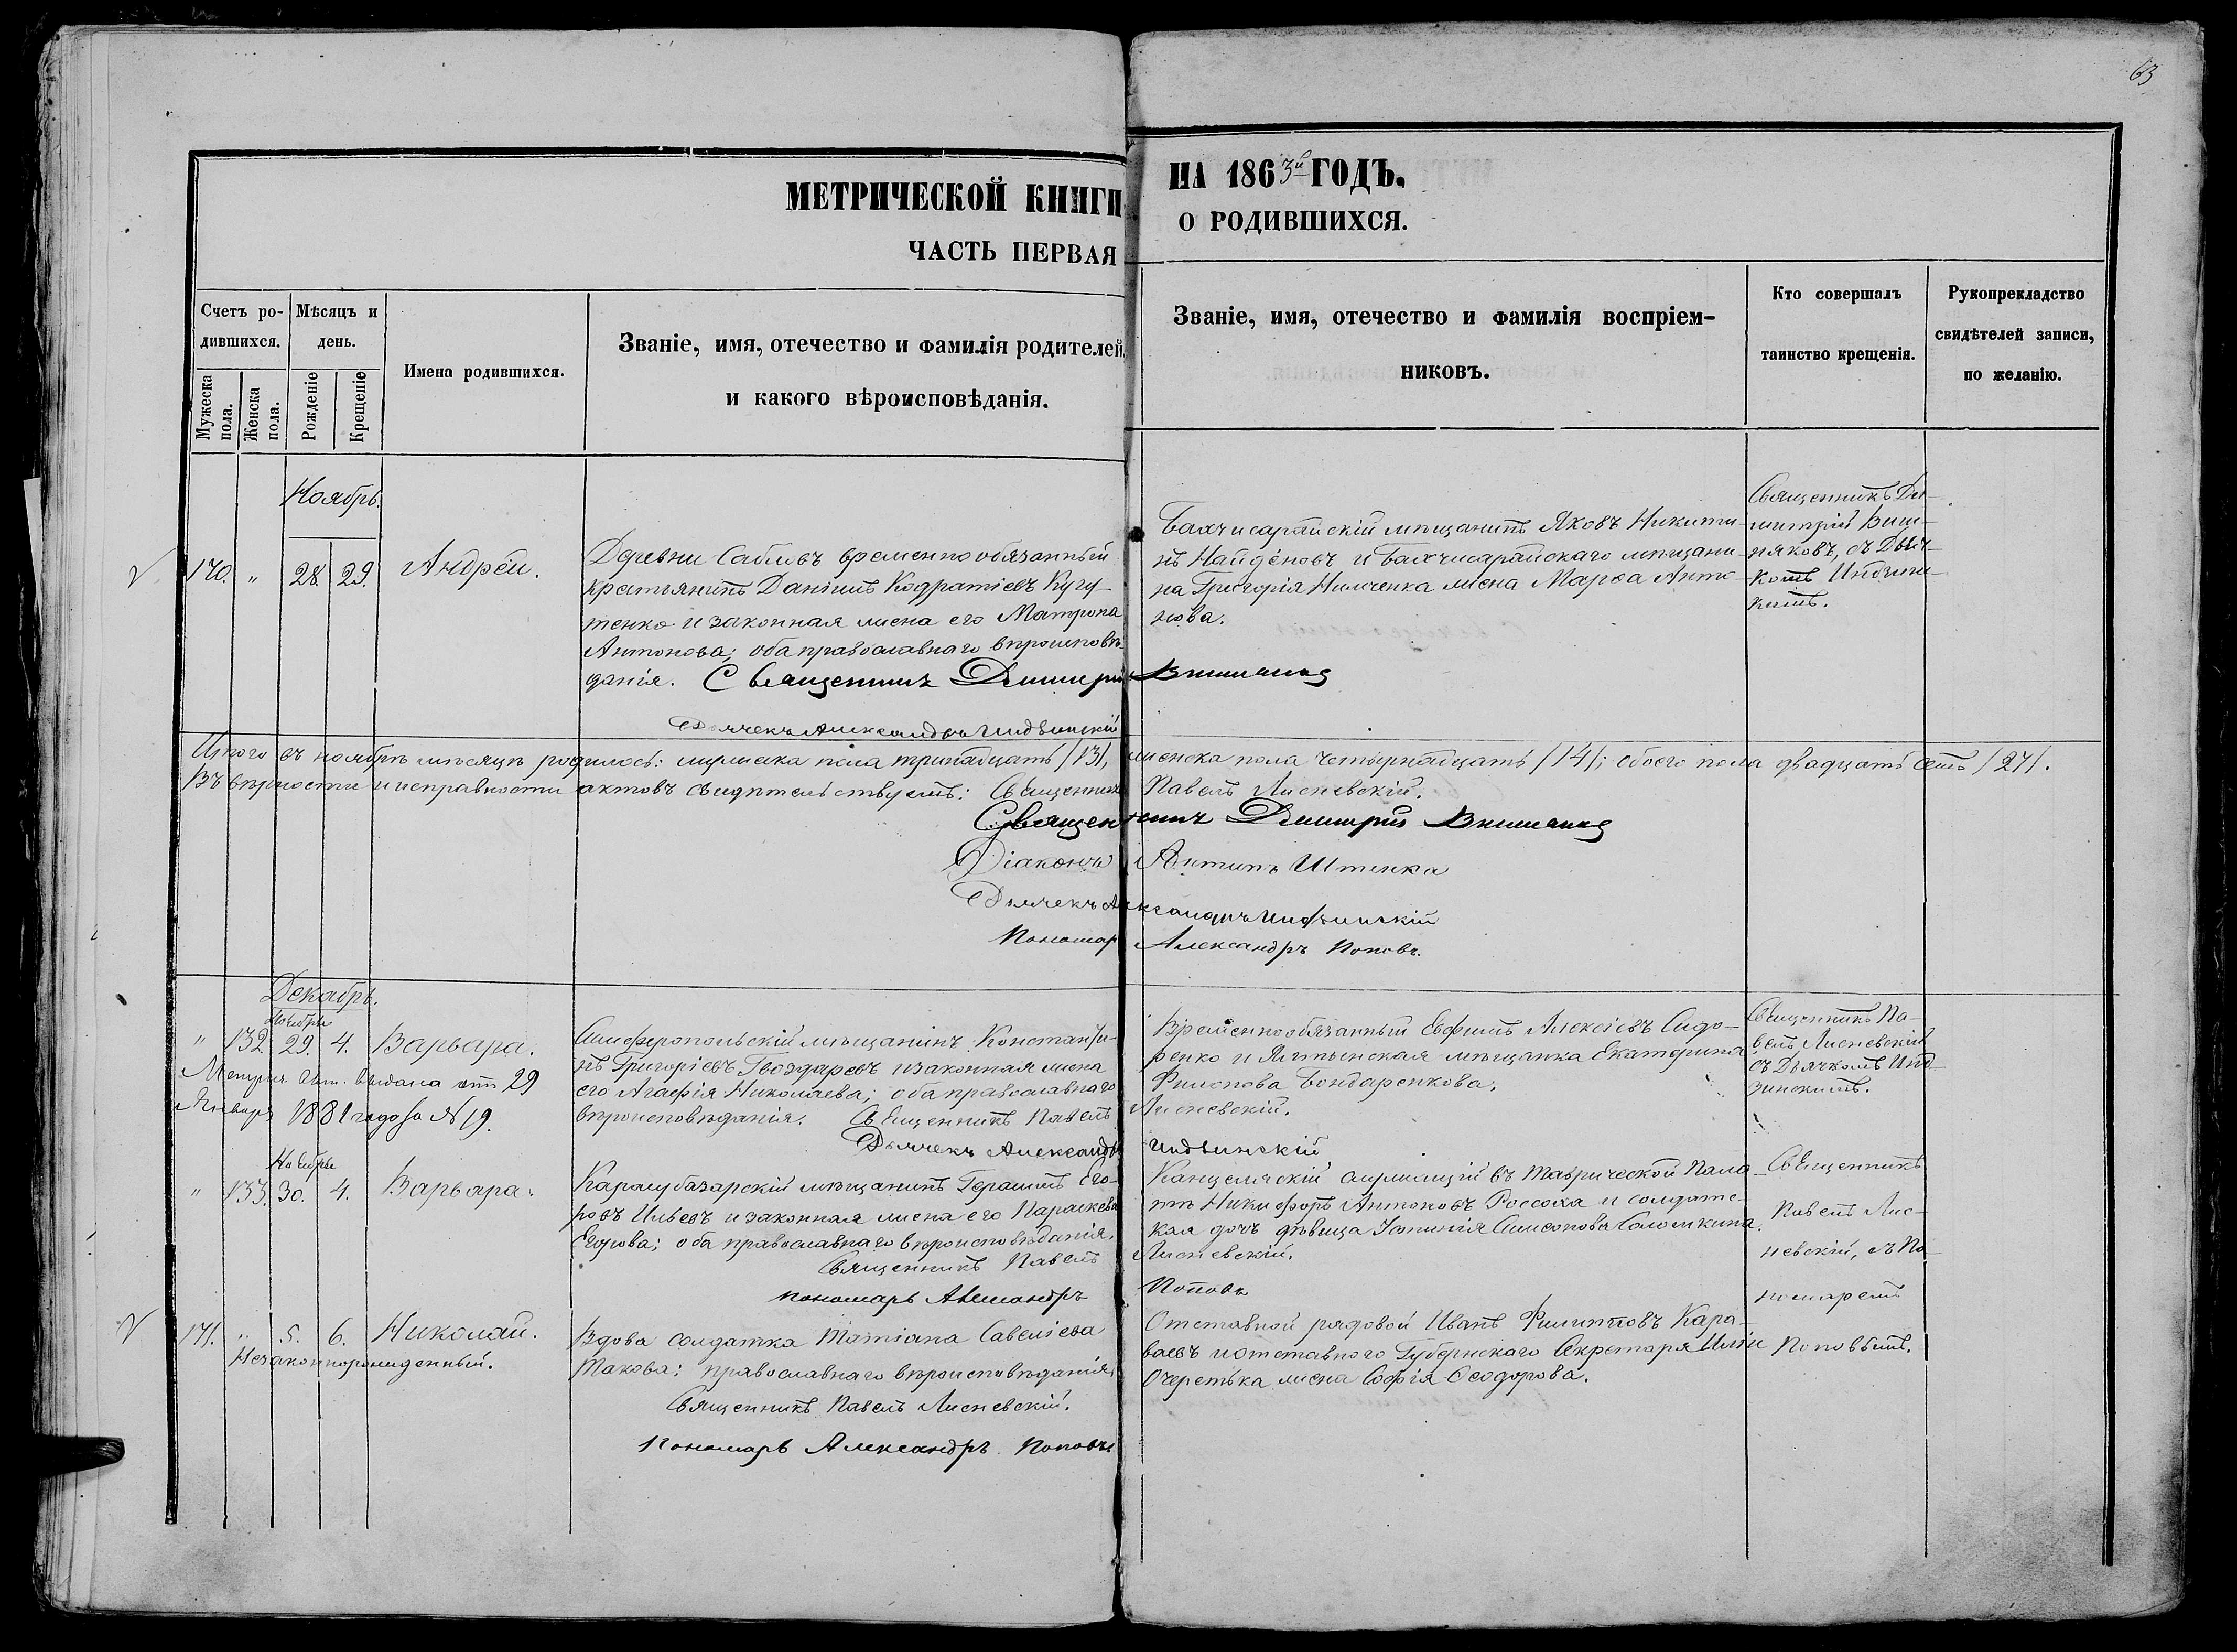 63
МЕТРИЧЕСКОЙ КНИГИ НА 1863й ГОДЪ.
ЧАСТЬ ПЕРВАЯ О РОДИВШИХСЯ.
Счетъ ро-
дившихся.
Мужеска пола.
Женска пола.
Мѣсяцъ и
день.
Рожденіе
Крещеніе
Имена родившихся.
Званіе, имя, отечество и фамилія родителей,
и какого вѣроисповѣданія.
Званіе, имя, отечество и фамилія воспріем-
никовъ.
Кто совершалъ
таинство крещенія.
Рукоприкладство
свидѣтелей записи,
по желанію.
Ноябрь.
140. " 28. 29. Андрей.
Деревни Сабловъ временнообязанный
крестьянинъ Даніилъ Кодратіевъ Кугу-
тенко и законная жена его Матрона
Антонова; оба православнаго вѣроисповѣ-
данія. Священникъ Димитрій
Дьячекъ Александръ Индзинскій
Бахчисарайскій мѣщанинъ Яковъ Никити-
нъ Найдёновъ и Бахчисарайскаго мѣщани-
на Григорія жена Марѳа Анто-
нова.
Священникъ Ди-
митрій Виш-
няковъ, съ Дьяч-
комъ Индзин-
кимъ.
Итого въ ноябрѣ мѣсяцѣ родилось: мужеска пола тринадцать /13/, женска пола четырнадцать /14/; обоего пола двадцать семь /27/.
Въ вѣрности и исправности актовъ свидѣтельствуемъ: Священникъ Павелъ Лисневскій.
Священникъ Димитрій
Діаконъ Антипъ
Дьячекъ Александръ Индзинскій
Пономарь Александръ Поповъ.
Декабрь.
Ноября
" 132 29. 4. Варвара.
Метрич. свид. выдана отъ 29
Января 1881 года за N 19.
Симферопольскій мѣщанинъ Константи-
нъ Григоріевъ Гвоздаревъ и законная жена
его Агафія Николаева; оба православнаго
вѣроисповѣданія. Священникъ Павелъ Лисневскій.
Дьячекъ Александръ Индзинскій
Временнообязанный Евфимъ Алексіевъ Сидо-
ренко и мѣщанка Екатерина
Филипова Бондаренкова.
Священникъ Па-
велъ Лисневскій
съ Дьячкомъ Инд-
зинскимъ.
Ноября
" 133. 30. 4. Варвара.
Карасубазарскій мѣщанинъ Герасимъ Его-
ровъ Ильевъ и законная жена его Параскева
Егорова; оба православнаго вѣроисповѣданія.
Священникъ Павелъ Лисневскій.
Пономарь Александръ Поповъ
Канцелярскій служащій въ Таврической Пала-
тѣ Никифоръ Антоновъ Россоха и солдатс-
кая дочь дѣвица Симеонова Соломкина.
Священникъ
Павелъ Лис-
невскій, съ По-
номаремъ
Поповымъ.
141. " 5. 6. Николай.
Незаконнорожденный.
Вдова солдатка Татіана Савеліева
Такова; православнаго вѣроисповѣданія.
Священникъ Павелъ Лисневскій.
Пономарь Александръ Поповъ
Отставной рядовой Иванъ Филипповъ Кара-
ваевъ и отставного Губернскаго Секретаря Иліи
Очеретька жена Софія Ѳеодорова.